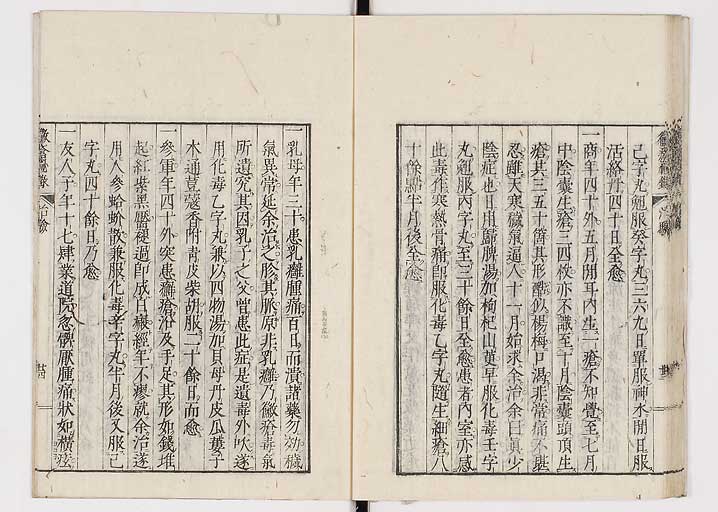 己字丸兼服癸字丸三六九日單服神水間日服
活絡丹四十日全愈
一商年四十外五月間耳內生一瘡不知覺至七月
中陰囊生瘡三四枚亦不識至十月陰囊頭頂生
瘡其三五十箇其形酷似楊梅口渴非常痛不堪
忍雖天寒穢氣逼人十一月始求余治余曰眞少
陰症也日用歸脾湯加枸杞山茰早服化毒壬字
丸兼服丙字丸至三十餘日全愈患者內室亦感
此毒作寒熱骨痛卽服化毒乙字丸隨生細瘡八
十餘點半月後全愈
一乳母年三十患乳癰腫痛百日而潰諸藥勿効穢
氣異常延余治之胗其脈原非乳癰乃黴瘡毒氣
所遺究其因乳子之父曾患此症是遺毒外吹遂
用化毒乙字丸兼以四物湯加貝母丹皮瓜蔞子
木通荳蔻香附靑皮柴胡服二十餘日而愈
一參軍年四十外突患癬瘡沿及手足其形如錢堆
起紅紫黑靨褪過卽成白癜經年不瘳就余治遂
用人參蛤蚧散兼服化毒辛字丸半月後又服己
字丸四十餘日乃愈
一友人子年十七肄業道院忽臍厭腫痛狀如橫弦